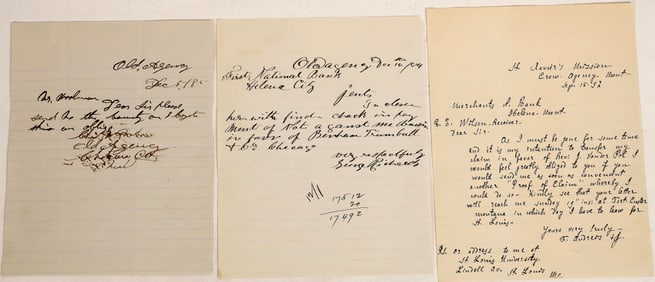 Old Agency
Dec
Dear Sir please
send
this
Old Agency
Old Agency Dec
First National Bank
Helena City
Gents
In close
here with find check in pay
ment of Not against me drawn
in favor of
& Co Chicago
very respectfully
17512
20
17492
St Xavier's Mission
Crow Agency Mont.
Sept 15 93
Merchants N. Bank
Helena Mont.
Wilson Receiver.
Dear Sir.
As I must be gone for some time
and it is my intention to transfer my
claim in favor of Rev. J. Vander Pol I
would feel greatly obliged to you if you
would send me as soon as convenient
another "Proof of Claim" whereby I
could do so. Kindly see that your letter
will reach me sunday 19th inst. at Fort Custer
montana in which day I have to leave for
St Louis.
Yours very truly
S.J.
or address to me at
St Louis University
Lindell Av. St Louis Mo.